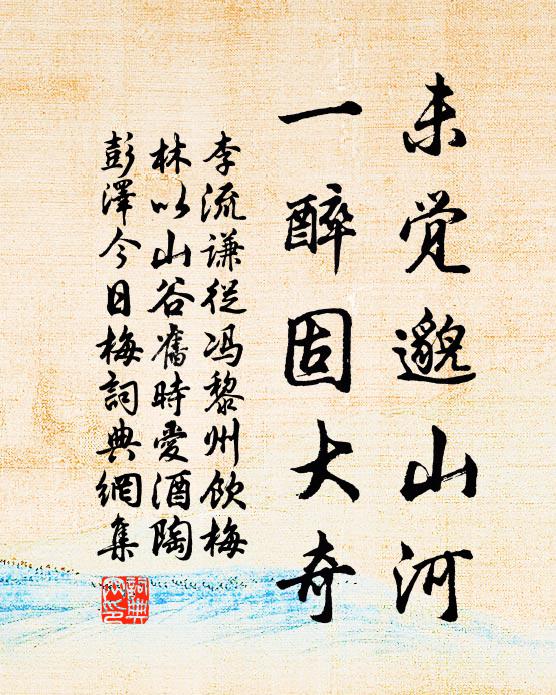 未觉邈山河
一醉固大奇
李流谦从冯黎州饮梅
林以山谷旧时爱酒陶
彭泽今日梅词典网集